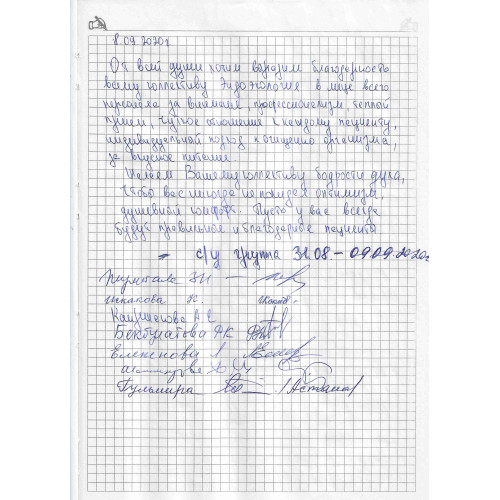 8.09.2020г
От всей души хотим выразить благодарность
всему коллективу Эндоэкология в лице всего
персонала за внимание, профессионализм, теплый
прием, чуткое отношение к каждому пациенту,
индивидуальный подход к очищению организма,
за вкусное питание.
Желаем Вашему коллективу бодрости духа,
чтобы вас никогда не покидал оптимизм,
душевный комфорт. Пусть у вас всегда
будут правильные и благодарные пациенты
с/у группа 31.08 – 09.09.2020г
Бекбулатова Р.К.
Гульмира